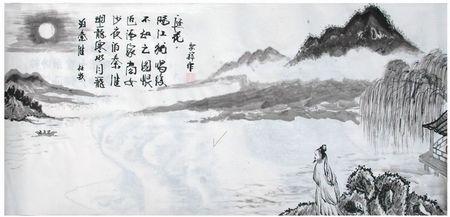 泊秦淮 杜牧
烟籠寒水月籠
沙夜泊秦淮
近酒家商女
不知亡国恨
隔江犹唱後
庭花